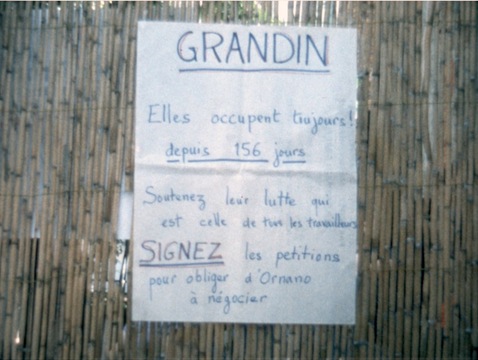 GRANDIN
Elles occupent toujours!
depuis 156 jours
Soutenez leur lutte qui
est celle de tous les travailleurs
SIGNEZ les petitions
pour obliger d'Ornano
à négocier